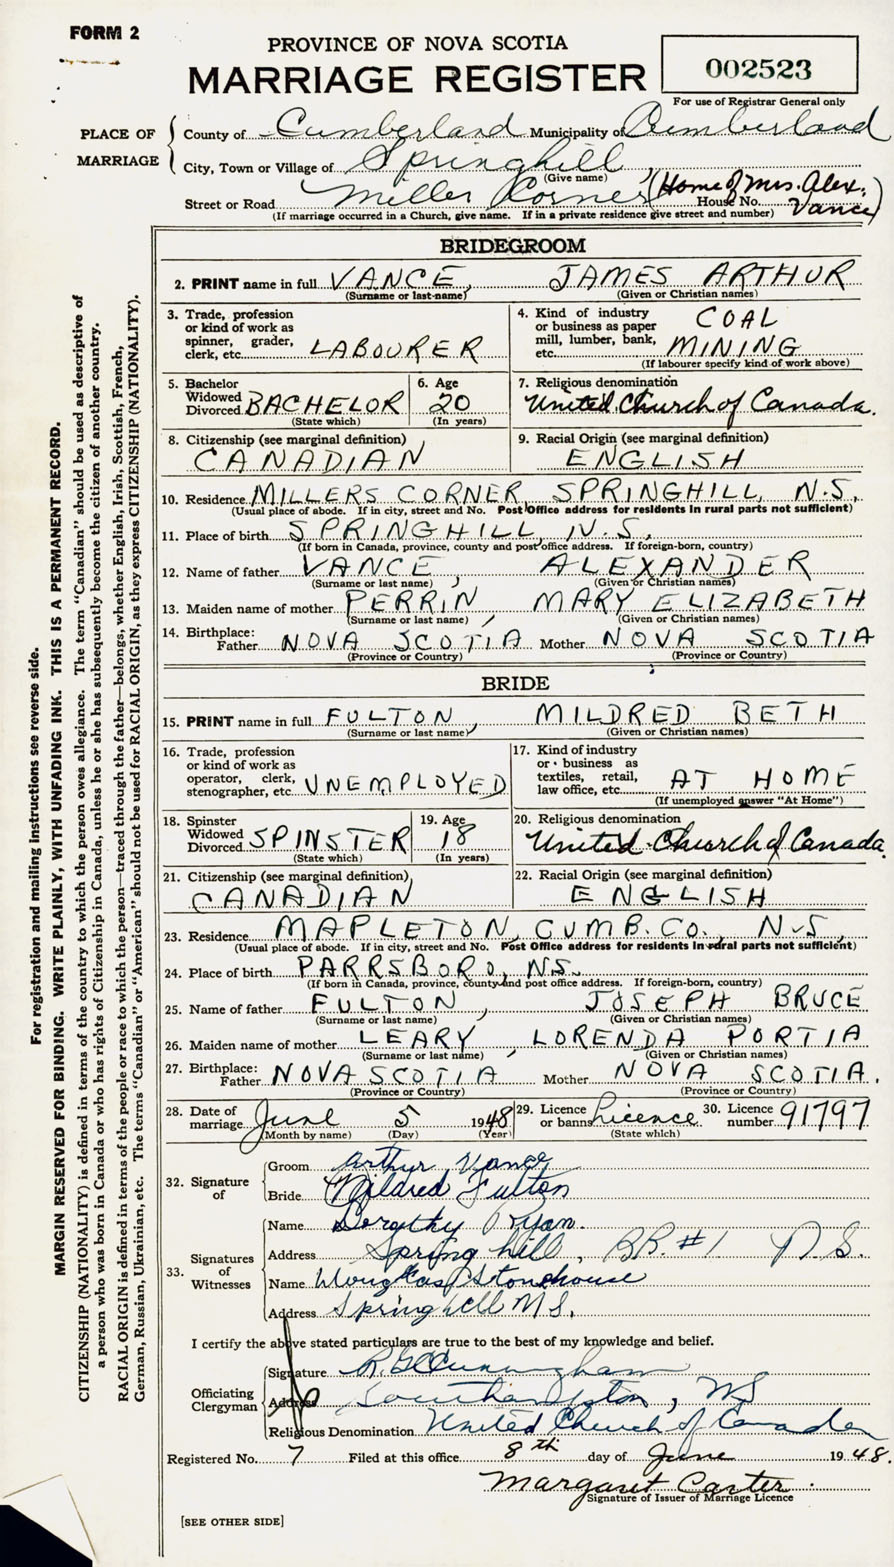 FORM 2
PROVINCE OF NOVA SCOTIA
MARRIAGE REGISTER
002523
For use of Registrar General only
PLACE OF MARRIAGE
County of Cumberland Municipality of Cumberland
City, Town or Village of Springhill,
(Give name)
Street or Road Miller Corner House No. (Home of Mrs. Alex. Vance)
(If marriage occurred in a Church, give name. If in a private residence give street and number)
BRIDEGROOM
2. PRINT name in full VANCE, JAMES ARTHUR
(Surname or last name) (Given or Christian names)
3. Trade, profession or kind of work as spinner, grader, clerk, etc. LABOURER
4. Kind of industry or business as paper mill, lumber, bank, etc. COAL MINING
(If labourer specify kind of work above)
5. Bachelor Widowed Divorced BACHELOR
(State which)
6. Age 20
(In years)
7. Religious denomination
United Church of Canada.
8. Citizenship (see marginal definition)
CANADIAN
9. Racial Origin (see marginal definition)
ENGLISH
10. Residence MILLERS CORNER, SPRINGHILL, N.S.
(Usual place of abode. If in city, street and No. Post Office address for residents in rural parts not sufficient)
11. Place of birth SPRINGHILL, N.S.
(If born in Canada, province, county and post office address. If foreign-born, country)
12. Name of father VANCE, ALEXANDER
(Surname or last name) (Given or Christian names)
13. Maiden name of mother PERRIN, MARY ELIZABETH
(Surname or last name) (Given or Christian names)
14. Birthplace: Father NOVA SCOTIA Mother NOVA SCOTIA
(Province or Country) (Province or Country)
BRIDE
15. PRINT name in full FULTON, MILDRED BETH
(Surname or last name) (Given or Christian names)
16. Trade, profession or kind of work as operator, clerk, stenographer, etc. UNEMPLOYED
17. Kind of industry or business as textiles, retail, law office, etc. AT HOME
(If unemployed answer "At Home")
18. Spinster Widowed Divorced SPINSTER
(State which)
19. Age 18
(In years)
20. Religious denomination
United Church of Canada.
21. Citizenship (see marginal definition)
CANADIAN
22. Racial Origin (see marginal definition)
ENGLISH
23. Residence MAPLETON, CUMB. CO., N.S.
(Usual place of abode. If in city, street and No. Post Office address for residents in rural parts not sufficient)
24. Place of birth PARRSBORO, N.S.
(If born in Canada, province, county and post office address. If foreign-born, country)
25. Name of father FULTON, JOSEPH BRUCE
(Surname or last name) (Given or Christian names)
26. Maiden name of mother LEARY, LORENDA PORTIA
(Surname or last name) (Given or Christian names)
27. Birthplace: Father NOVA SCOTIA Mother NOVA SCOTIA.
(Province or Country) (Province or Country)
28. Date of marriage June 5 1948
(Month by name) (Day) (Year)
29. Licence or banns Licence
(State which)
30. Licence number 91797
32. Signature of
Groom Arthur Vance
Bride Mildred Fulton
33. Signatures of Witnesses
Name Dorothy Ryan.
Address Springhill, RR. #1 N.S.
Name Douglas Stonehouse
Address Springhill N.S.
I certify the above stated particulars are true to the best of my knowledge and belief.
Officiating Clergyman
Signature Cunningham
Address Southampton, NS
Religious Denomination United Church of Canada
Registered No. 7 Filed at this office 8th day of June 1948.
Margaret Carter.
Signature of Issuer of Marriage Licence
[SEE OTHER SIDE]
For registration and mailing instructions see reverse side.
MARGIN RESERVED FOR BINDING. WRITE PLAINLY, WITH UNFADING INK. THIS IS A PERMANENT RECORD.
CITIZENSHIP (NATIONALITY) is defined in terms of the country to which the person owes allegiance. The term "Canadian" should be used as descriptive of
a person who was born in Canada or who has rights of Citizenship in Canada, unless he or she has subsequently become the citizen of another country.
RACIAL ORIGIN is defined in terms of the people or race to which the person—traced through the father—belongs, whether English, Irish, Scottish, French,
German, Russian, Ukrainian, etc. The terms "Canadian" or "American" should not be used for RACIAL ORIGIN, as they express CITIZENSHIP (NATIONALITY).